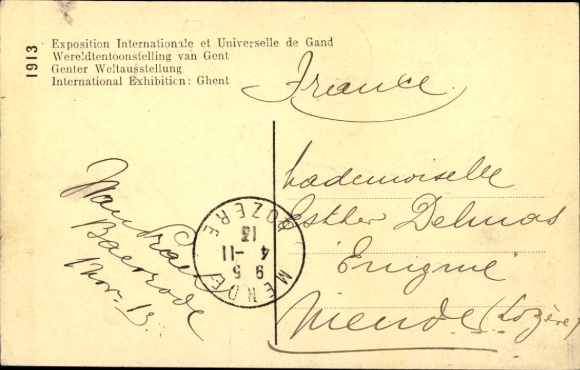 1913
Exposition Internationale et Universelle de Gand
Wereldtentoonstelling van Gent
Genter Weltausstellung
International Exhibition: Ghent
France
Mademoiselle
Esther Delmas
"Enigme"
Mende (Lozère)
Baesrode
Nov. 13.
MENDE
9 5
4 -11
13
LOZERE